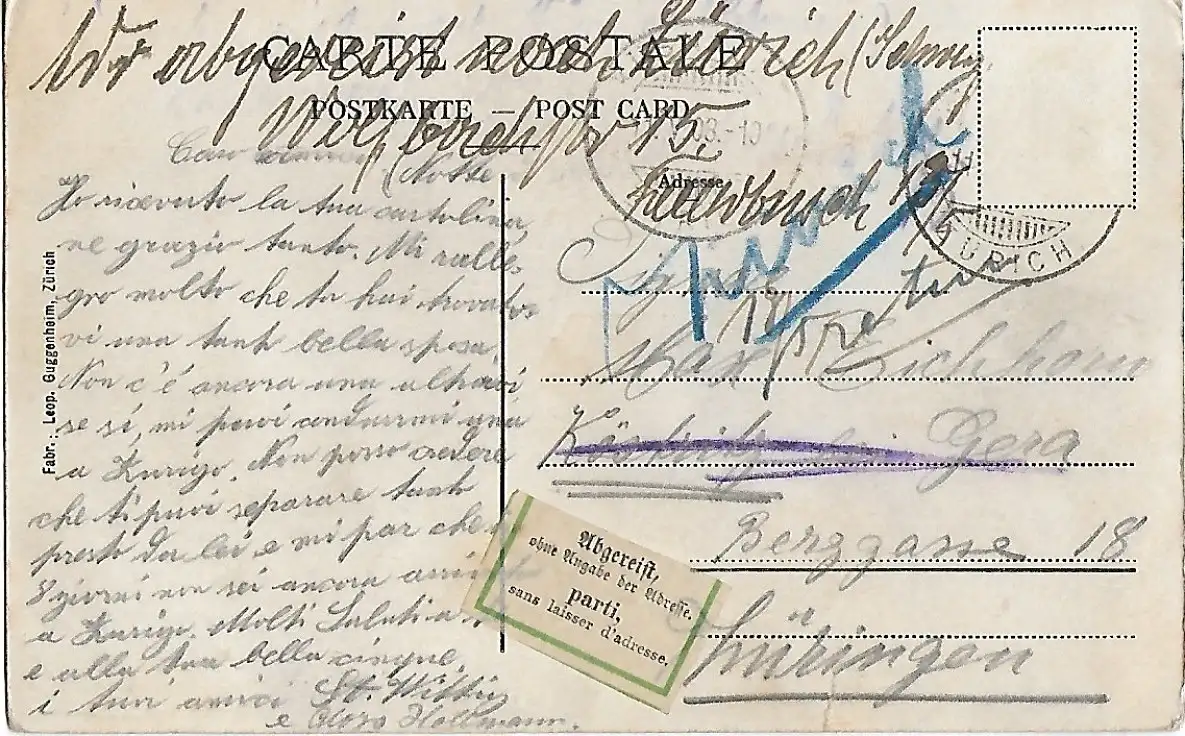 CARTE POSTALE
abgereist nach Zürich (
POSTKARTE — POST CARD
15.
08.-10
Adresse
ZÜRICH
Fabr.: Leop. Guggenheim, Zürich
Caro
Ho ricevuto la tua cartolina,
ne grazio tanto. Mi ralle-
gro molto che tu hai trovato
vi una tanto bella sposa.
Non c'è ancora una altra
se sì, mi puoi condurmi una
a Zurigo. Non posso credere
che ti puoi separare tanto
presto da lei e mi par che
3 giorni non sei ancora
a Zurigo. Molti Saluti a te
e alla tua bella cinque,
i tuoi amici
e Hollmann.
Max Eichhorn
Köstritz bei Gera
Berggasse 18
Thüringen
retour
Abgereist,
ohne Angabe der Adresse.
parti,
sans laisser d'adresse.